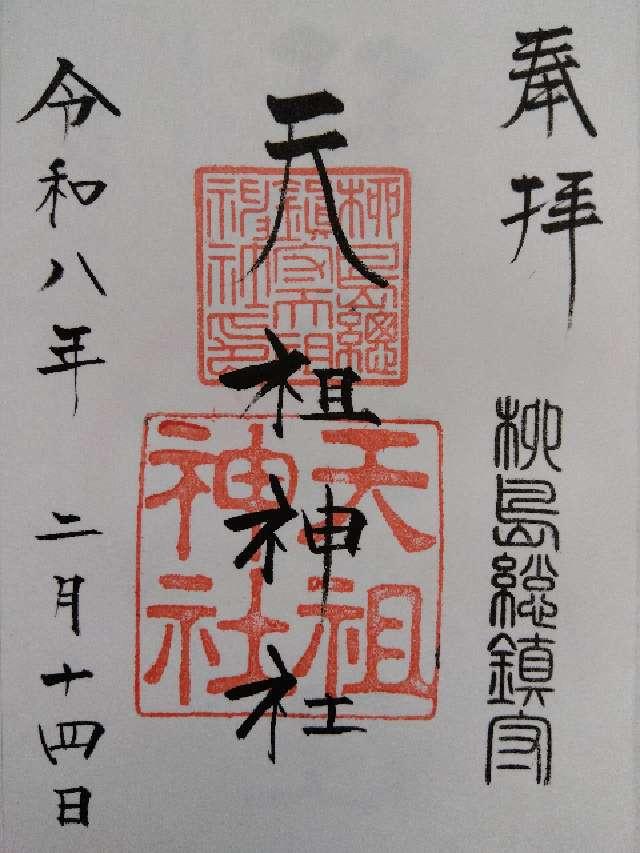 奉拝
柳島総鎮守
天祖神社
柳島總鎮守天祖神社印
天祖神社
令和八年 二月十四日